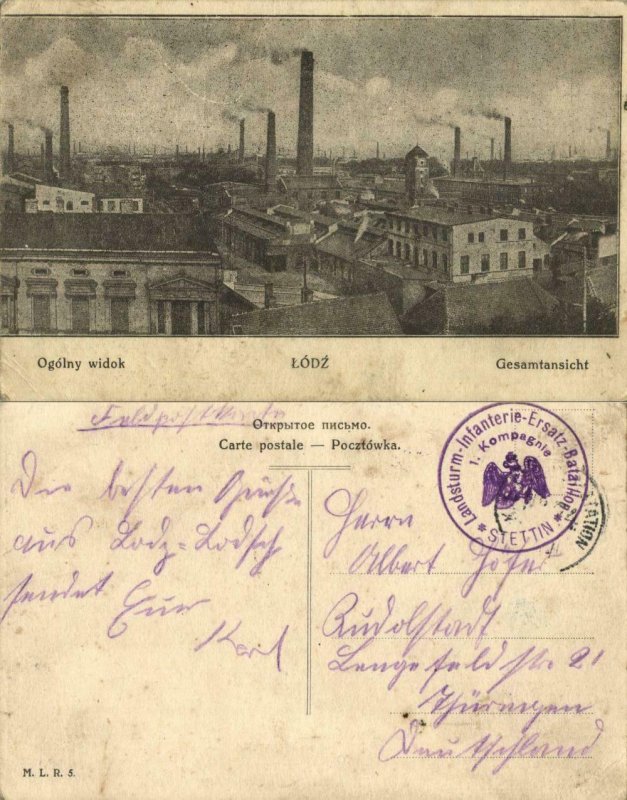 Ogólny widok ŁÓDŹ Gesamtansicht
Feldpostkarte
Открытое письмо.
Carte postale — Pocztówka.
Landsturm-Infanterie-Ersatz-Bataillon
1. Kompagnie
* STETTIN *
STATION
Die besten Grüsse
aus Lodz-Lodsch
sendet Euer
Karl
Herrn
Albert Höfer
Rudolstadt
Thüringen
Deutschland
M. L. R. 5.